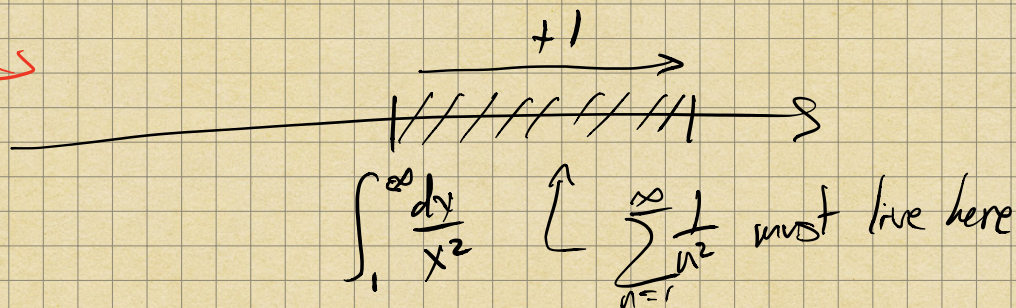 +1
∫₁^∞ dx/x² ∑_{n=1}^∞ 1/n² must live here